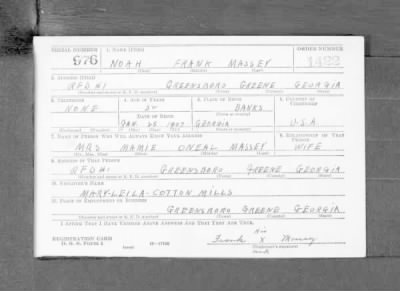 SERIAL NUMBER 1. NAME (Print) ORDER NUMBER
976 NOAH FRANK MASSEY 1422
(First) (Middle) (Last)
2. ADDRESS (Print)
RFD #1 GREENSBORO GREENE GEORGIA
(Town) (County) (State)
3. TELEPHONE 4. AGE IN YEARS 5. PLACE OF BIRTH 6. COUNTRY OF CITIZENSHIP
NONE BANKS
DATE OF BIRTH
JAN 25 1907 GEORGIA U.S.A
7. NAME OF PERSON WHO WILL ALWAYS KNOW YOUR ADDRESS 8. RELATIONSHIP OF THAT PERSON
MRS MAMIE ONEAL MASSEY WIFE
(Mr., Mrs., Miss) (First) (Middle) (Last)
9. ADDRESS OF THAT PERSON
RFD #1 GREENSBORO GREENE GEORGIA
(Town) (County) (State)
10. EMPLOYER'S NAME
MARY-LEILA-COTTON MILLS
11. PLACE OF EMPLOYMENT OR BUSINESS
GREENSBORO GREENE GEORGIA
(Town) (County) (State)
I AFFIRM THAT I HAVE VERIFIED ABOVE ANSWERS AND THAT THEY ARE TRUE.
REGISTRATION CARD his
D. S. S. Form 1 Frank X Massey
(Registrant's signature)
mark